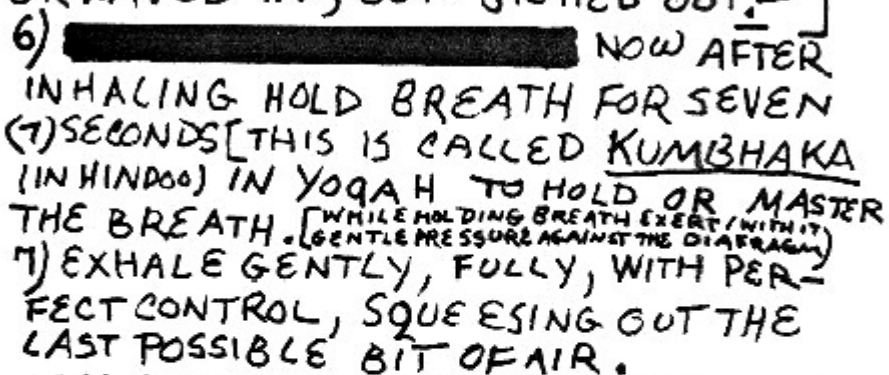 6) NOW AFTER
INHALING HOLD BREATH FOR SEVEN
(7) SECONDS [THIS IS CALLED KUMBHAKA
(IN HINDOO) IN YOGAH TO HOLD OR MASTER
THE BREATH. [WHILE HOLDING BREATH EXERT/WITH IT/
GENTLE PRESSURE AGAINST THE DIAFRAGM)
7) EXHALE GENTLY, FULLY, WITH PER-
FECT CONTROL, SQUEESING OUT THE
LAST POSSIBLE BIT OF AIR.